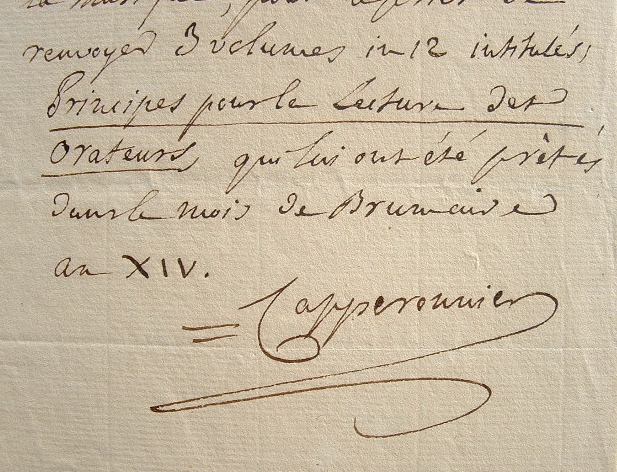 la musique, pour
renvoyer 3 volumes in 12 intitulés,
Principes pour la Lecture des
Orateurs, qui lui ont été prêtés
dans le mois de Brumaire
an XIV.
Capperonnier